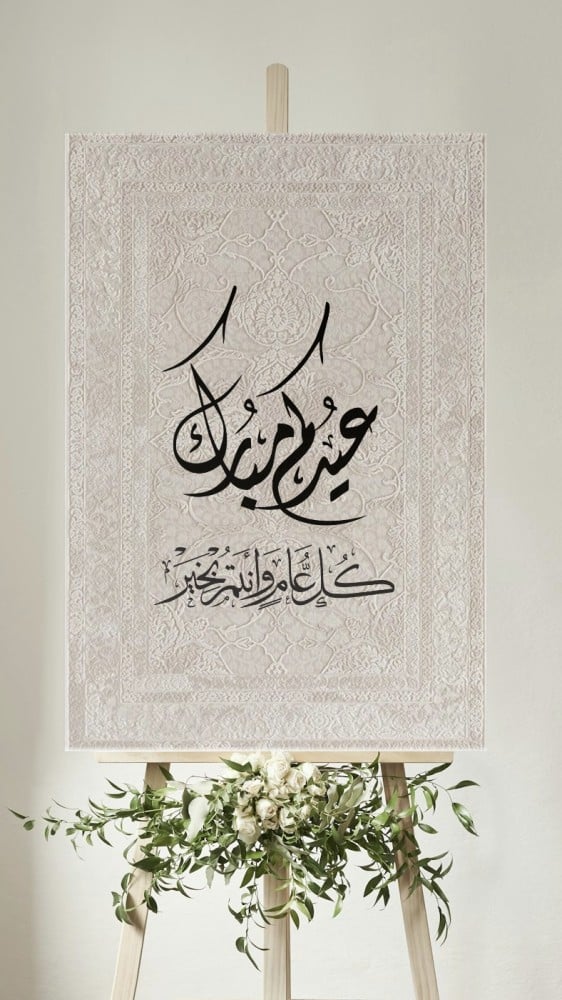 عيدكم مبارك
كُل عَّام وَأنتمُ بُخيَر